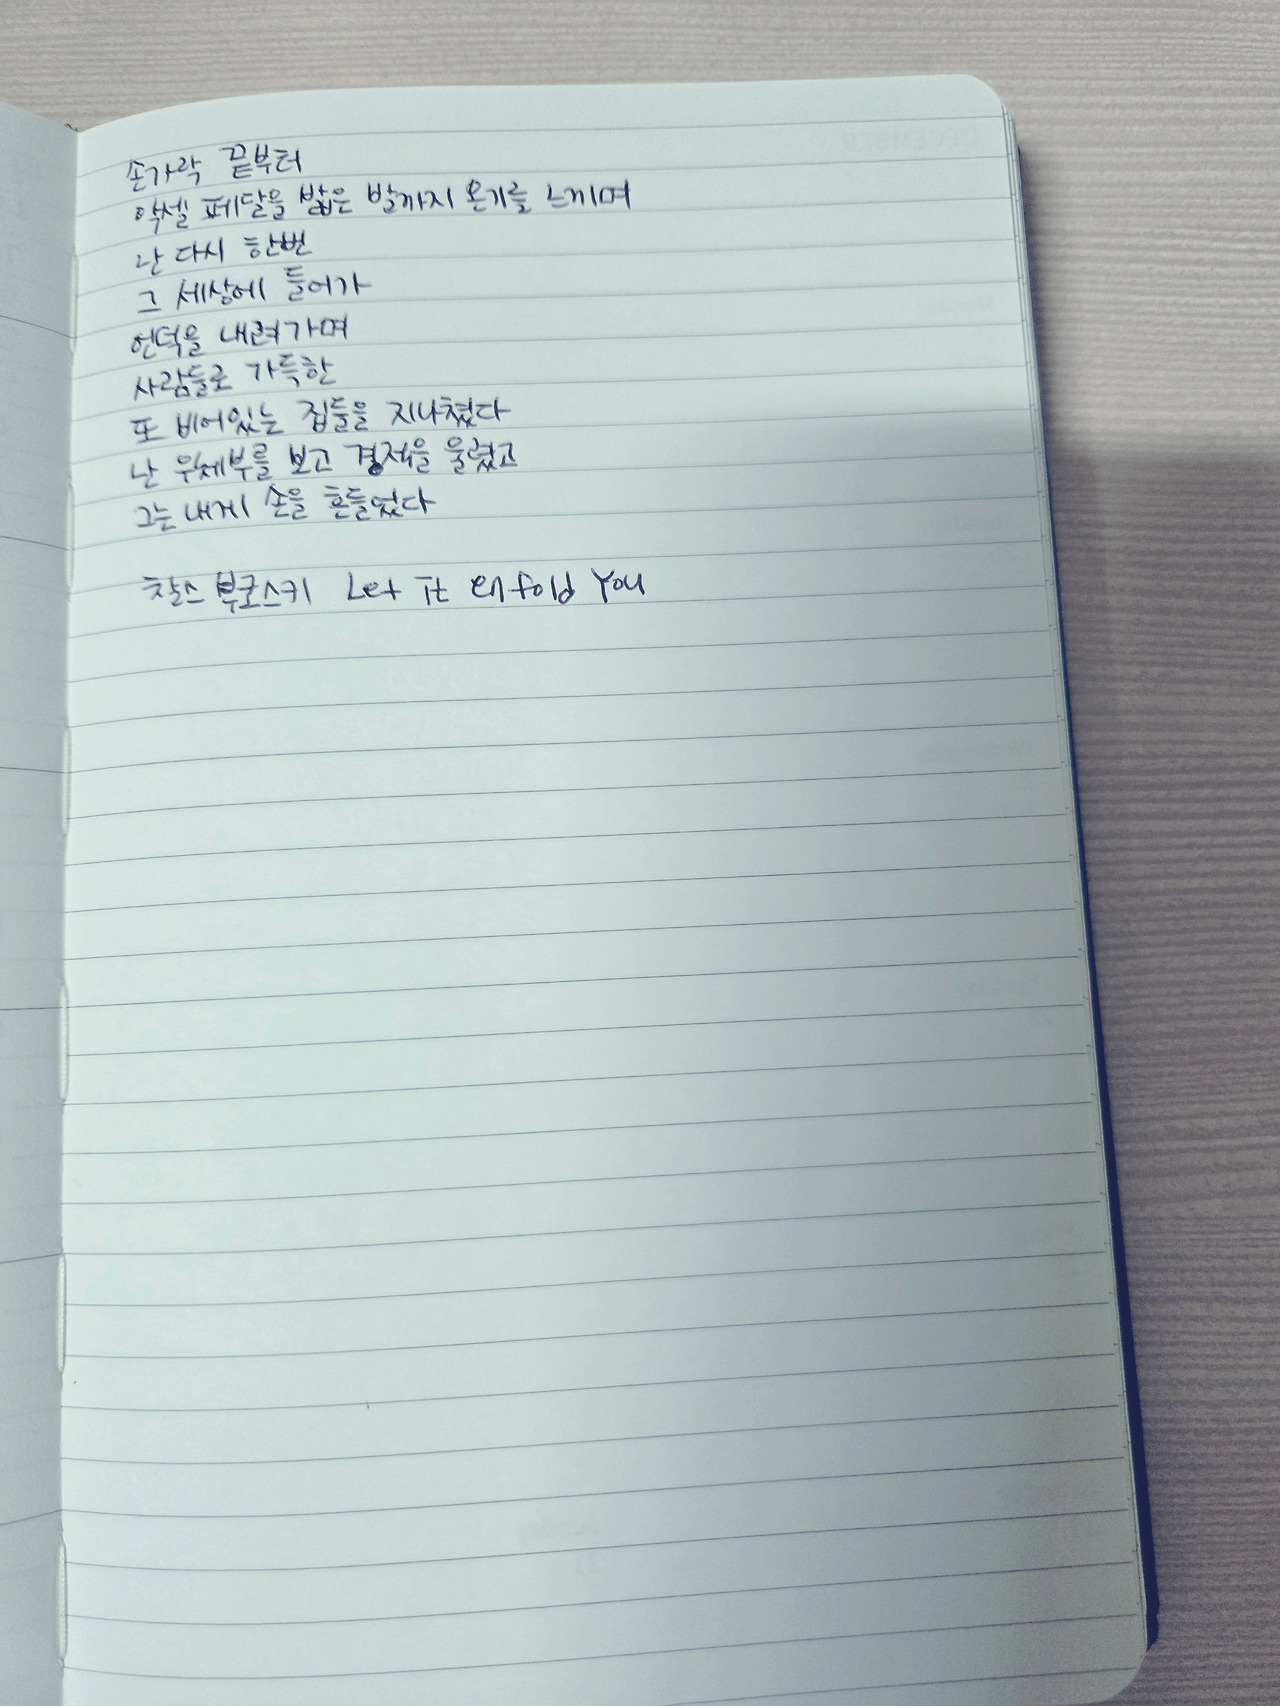 손가락 끝부터
악셀 페달을 밟은 발까지 온기를 느끼며
난 다시 한번
그 세상에 들어가
언덕을 내려가며
사람들로 가득한
또 비어있는 집들을 지나쳤다
난 우체부를 보고 경적을 울렸고
그는 내게 손을 흔들었다
찰스 부코스키 Let It enfold You